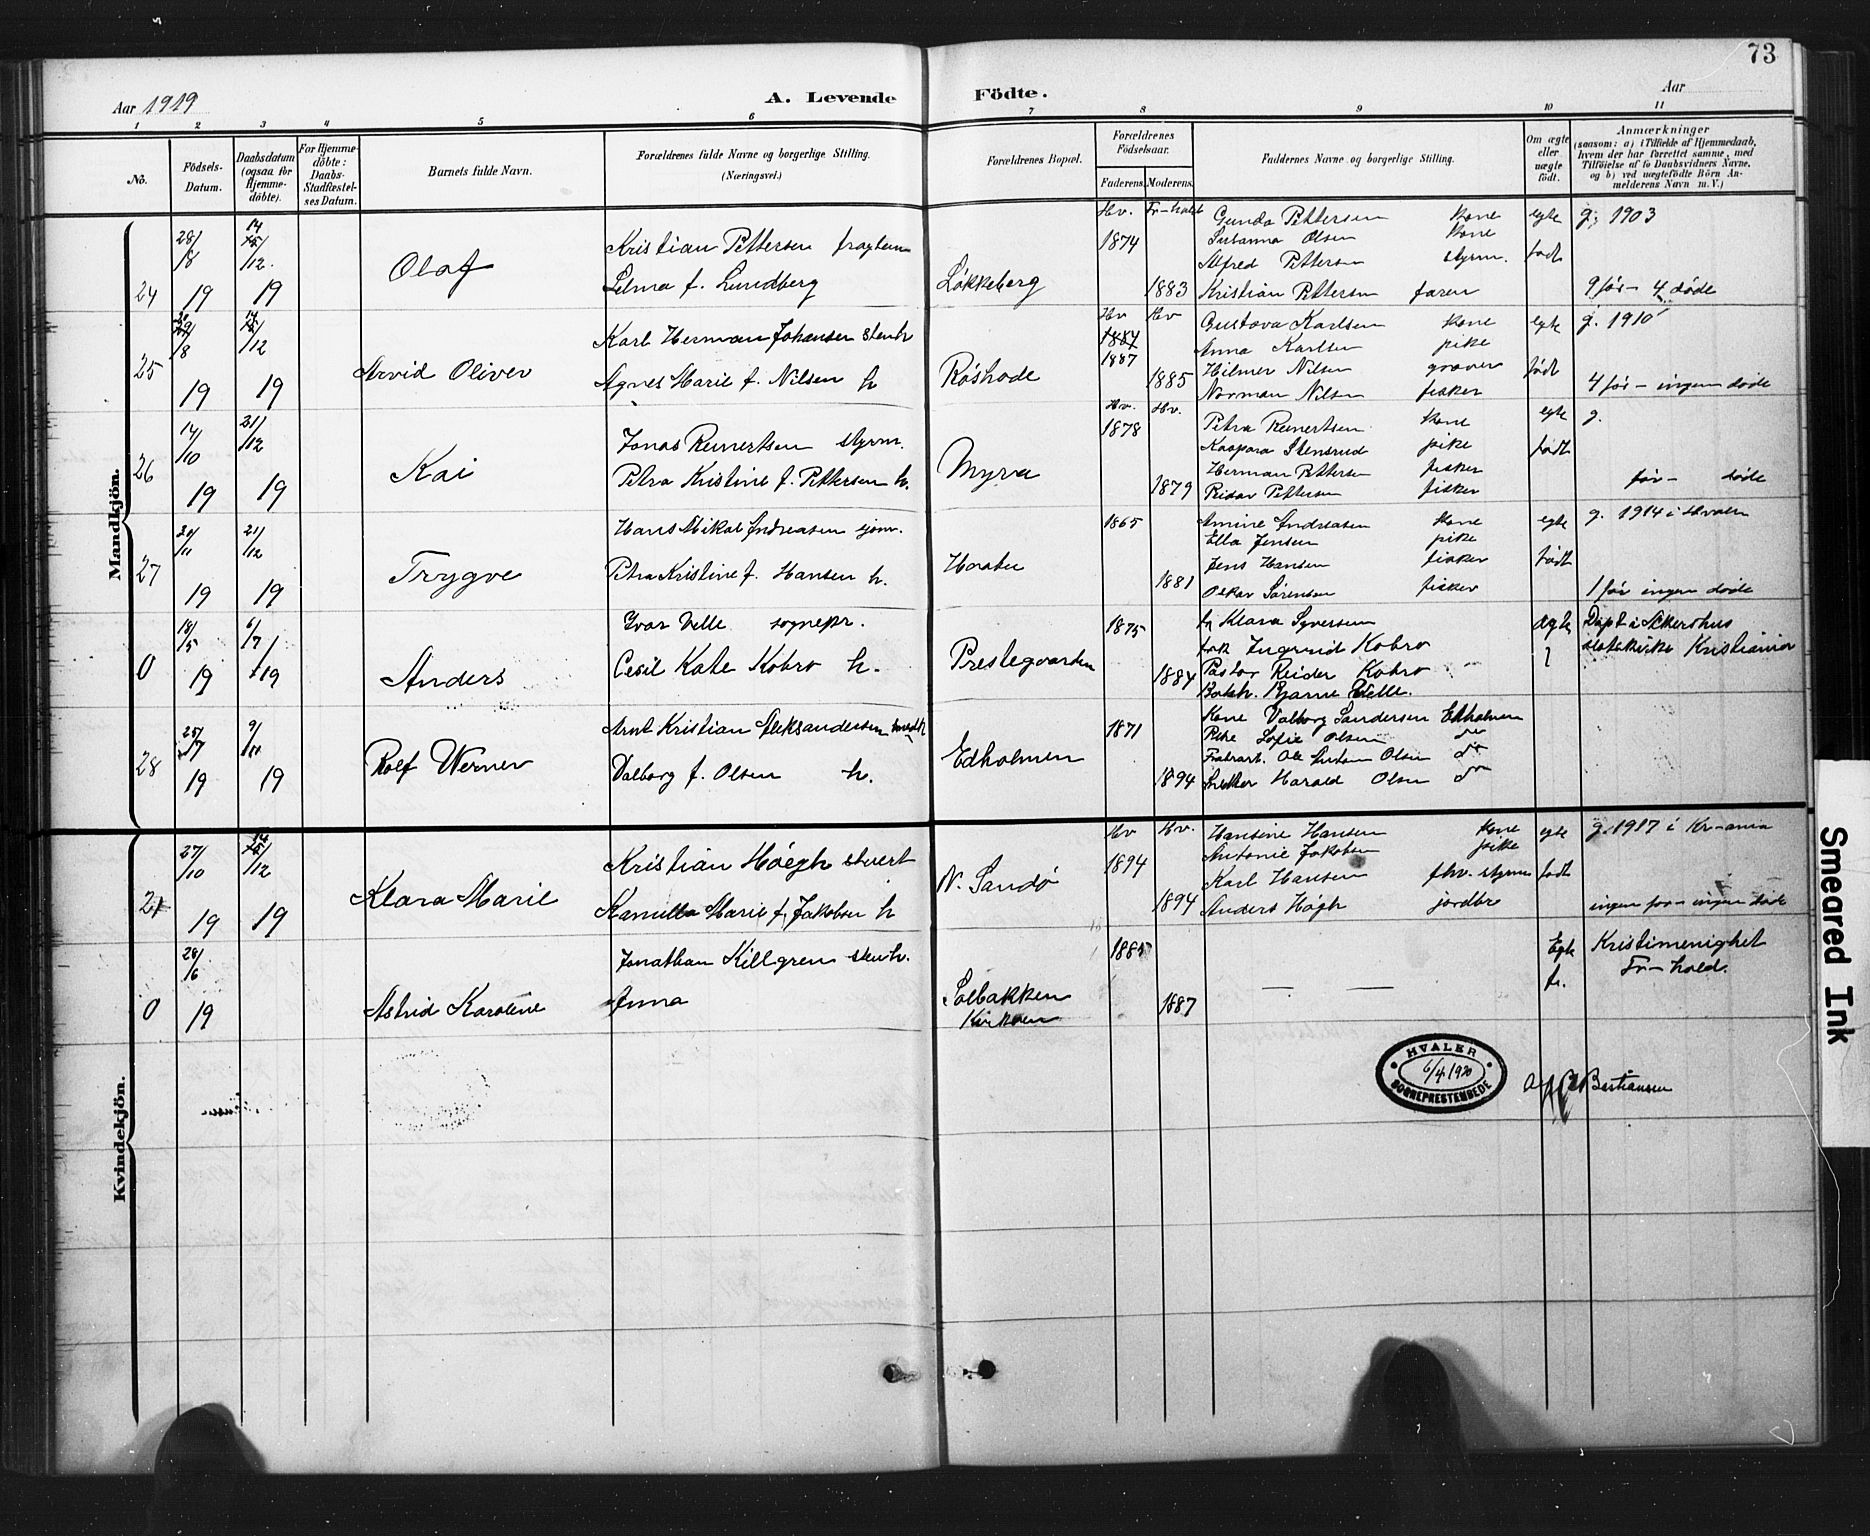 73
Aar 1919
A. Levende Födte.
Aar
1 2 3 4 5 6 7 8 9 10 11
No.
Födsels-Datum.
Daabsdatum (ogsaa for Hjemme-döbte).
For Hjemme-döbte: Daabs-Stadfæstel-ses Datum.
Barnets fulde Navn.
Forældrenes fulde Navne og borgerlige Stilling.
(Næringsvei.)
Forældrenes Bopæl.
Forældrenes Födselsaar.
Faderens. Moderens.
Faddernes Navne og borgerlige Stilling.
Om ægte eller uægte födt.
Anmærkninger
(saasom: a) i Tilfælde af Hjemmedaab,
hvem der har forrettet samme, med
Tilföielse af to Daabsvidners Navne,
og b) ved uægtefödte Börn An-
melderens Navn m. V.)
Mandkjön.
24 28/8 19 14/12. 19
Olaf
Kristian Pettersen
Selma f. Lundberg
Løkkeberg
Hv. Fr-hald
1874
1883
Gunda Pettersen kone
Susanna Olsen kone
Alfred Pettersen styrm.
Kristian Pettersen faren
egte født
g. 1903
9 før - 4 døde
25 /8 19 14/12 19
Arvid Oliver
Karl Herman Johansen stenh
Agnes Marie f. Nilsen h
Røshode
Hv Hv
1884
1887
1885
Gustava Karlsen kone
Anna Karlsen pike
Hilmer Nilsen graver
Norman Nilsen fisker
egte født
g. 1910
4 før - ingen døde
26 14/10 19 21/12 19
Kai
Jonas Reinertsen styrm.
Petra Kristine f. Pettersen h.
Myra
Hv. Hv.
1878
1879
Petra Reinertsen kone
Kaspara Stensrud pike
Herman Pettersen fisker
Reidar Pettersen fisker
egte født
g.
før - døde
27 20/11 19 21/12 19
Trygve
Hans Mikal Andreasen sjøm.
Petra Kristine f. Hansen h.
1865
1881
Amine Andreasen kone
Ella Jensen pike
Jens Hansen fisker
Oskar Sørensen fisker
egte født
g. 1914 i Hvaler
1 før ingen døde
0 18/5 19 6/7 19
Anders
Ivar Velle sognepr.
Cesil Kate Kobro h.
Prestegaarden
1875
1884
fr Klara Syversen
frk Ingerid Kobro
Pastor Reidar Kobro
Bokh. Bjarne Velle.
ægte
Døpt i Akershus
slotskirke Kristiania
28 25/7 19 9/11 19
Rolf Werner
Arnt Kristian Aleksandersen
Valborg f. Olsen h.
Edholmen
1871
1894
Kone Valborg Sandersen Edholmen
Pike Sofie Olsen do
Olsen do
Snekker Harald Olsen do
Kvindekjön.
21 27/10 19 14/12 19
Klara Marie
Kristian Höegh stuert
Kamilla Marie f. Jakobsen h
N. Sandö
Hv Hv.
1894
1894
Hansine Hansen kone
Antonie Jakobsen pike
Karl Hansen fhv. styrm
Anders Högh jordbr
egte født
g. 1917 i Kr-ania
ingen før - ingen døde
0 28/6 19
Astrid Karoline
Jonathan Killgren stenh.
Anna
Solbakken
Kirkøen
1885
1887
— —
Egte f.
Kristimenighet
Fr-hald.
HVALER
6/4 1920
SOGNEPRESTEMBEDE
Bastiansen
Smeared Ink